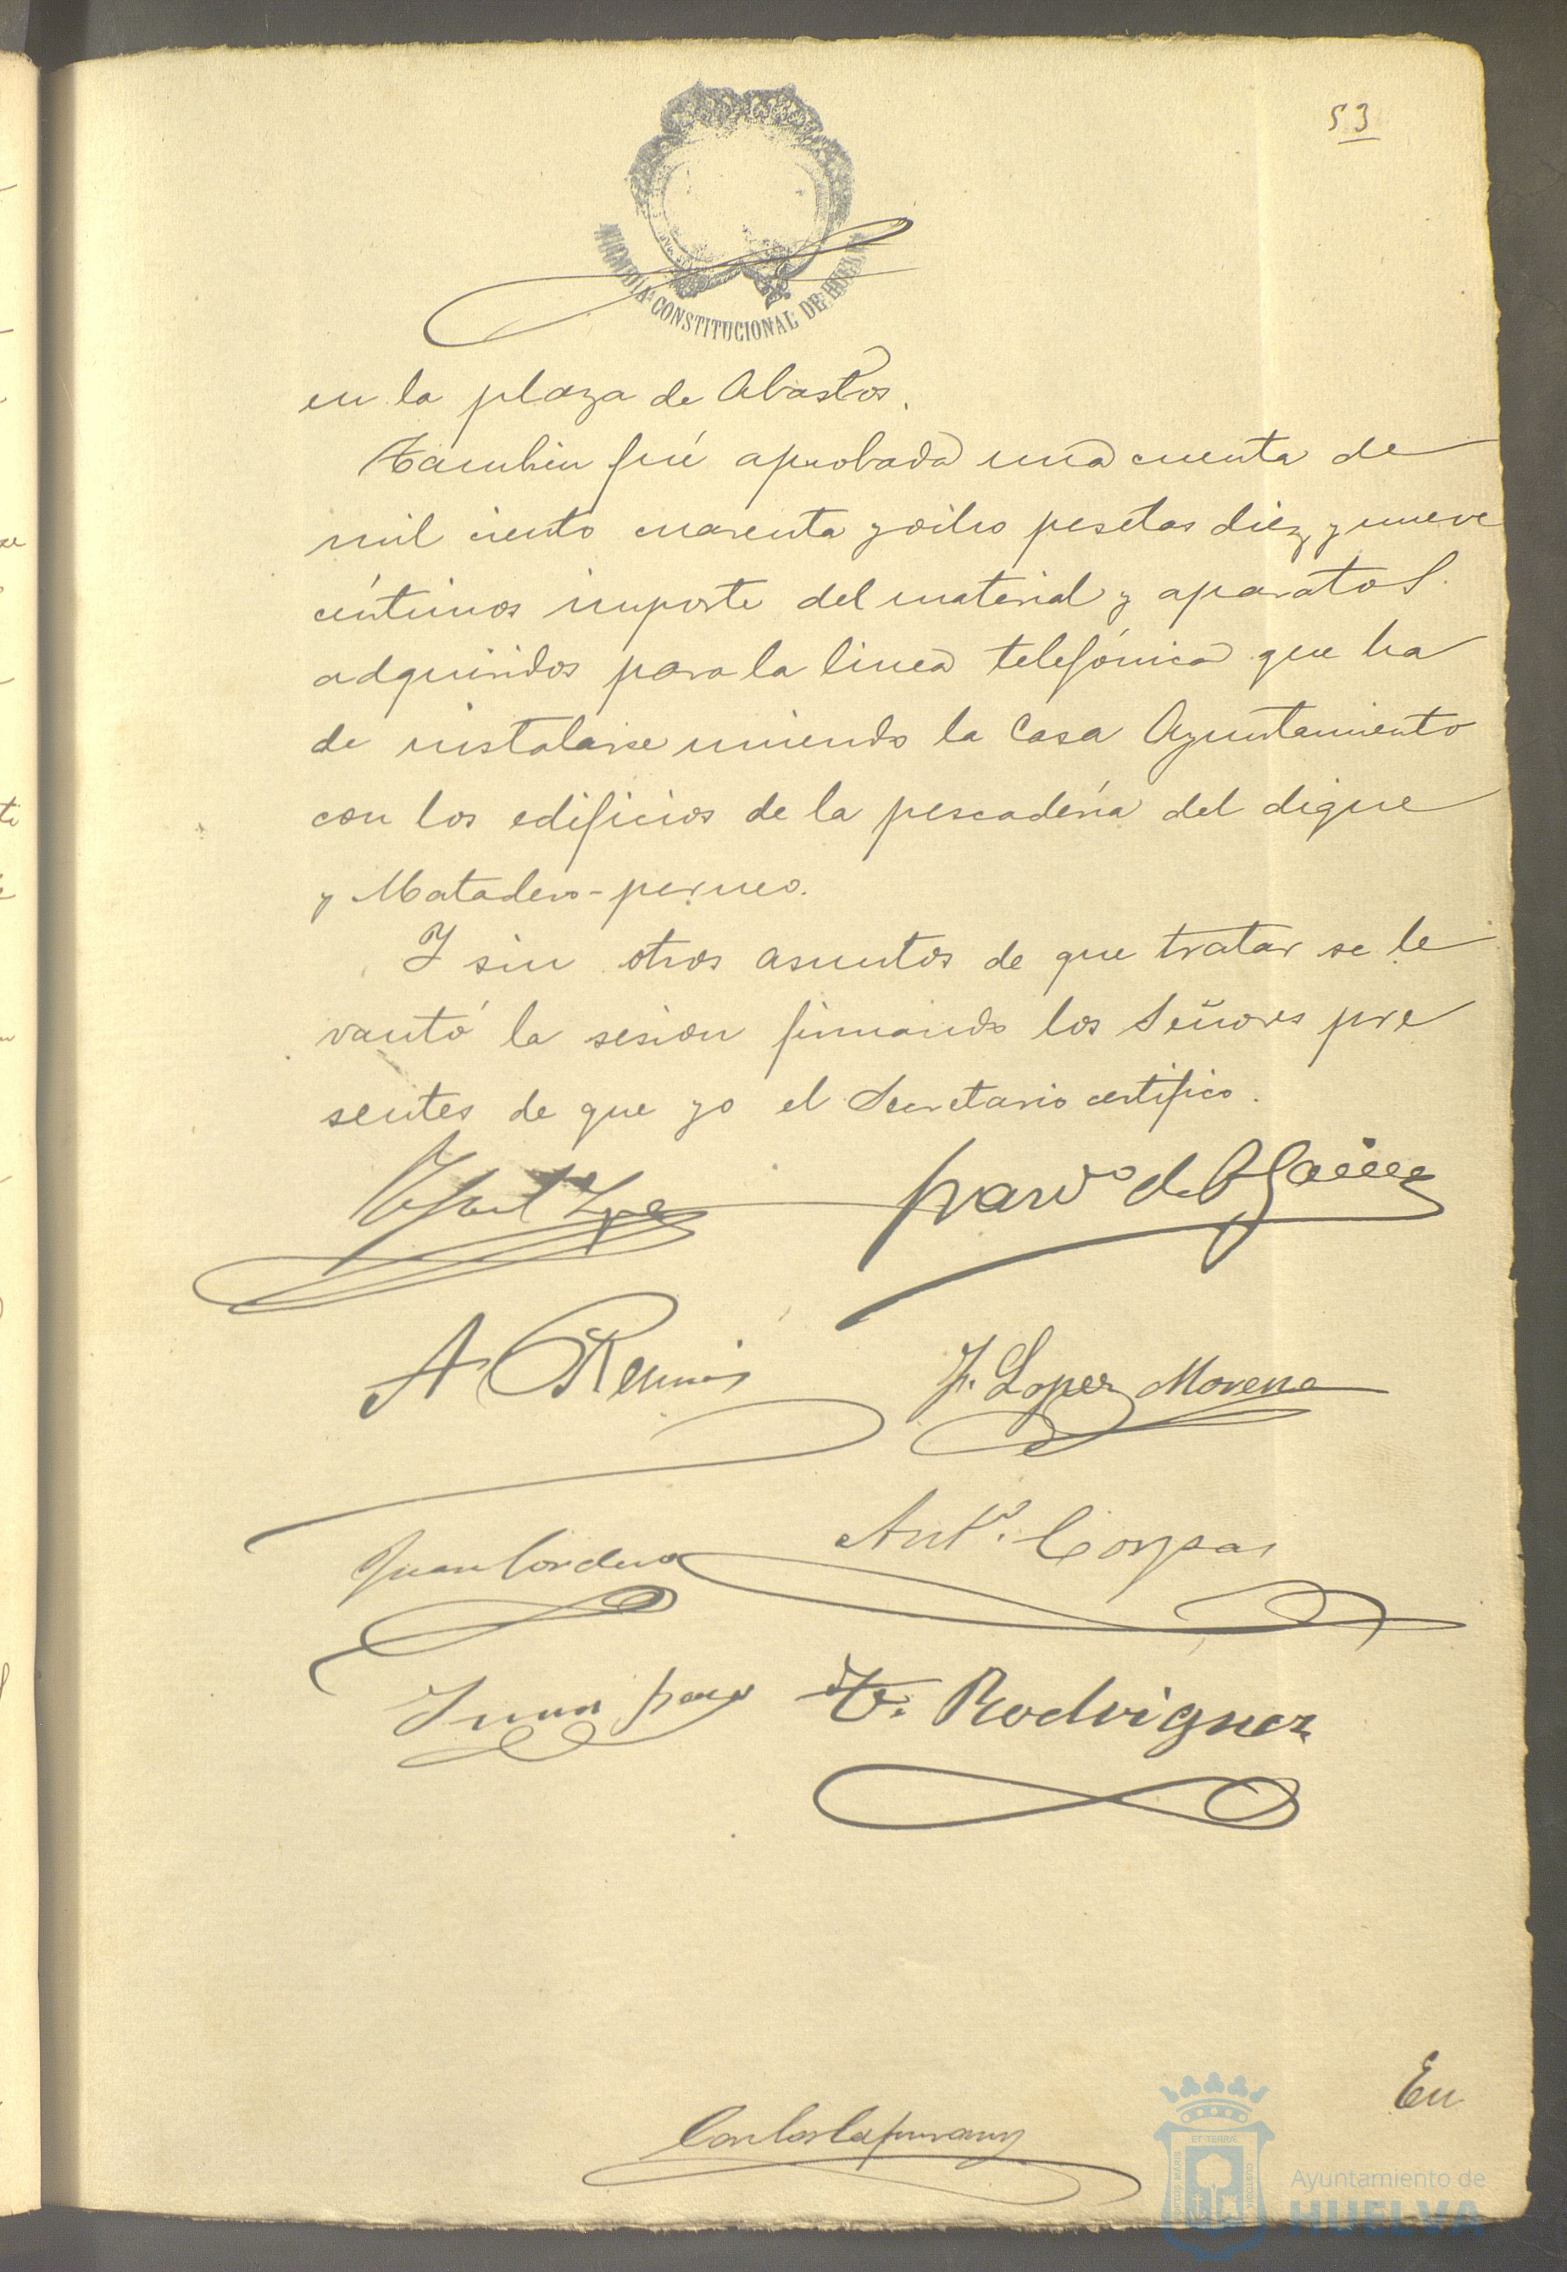 53
CONSTITUCIONAL DE HUELVA
en la plaza de Abastos.
Tambien fué aprobada una cuenta de
mil ciento cuarenta y ocho pesetas diez y nueve
céntimos importe del material y aparatos
adquiridos para la linea telefónica que ha
de instalarse uniendo la Casa Ayuntamiento
con los edificios de la pescadería del dique
y Matadero-perneo.
Y sin otros asuntos de que tratar se le
vantó la sesion firmando los Señores pre
sentes de que yo el Secretario certifico.
A.
F. Lopez Moreno
Juan Cordero
Antº. Corpas
Juan
Rodriguez
En
Ayuntamiento de
HUELVA